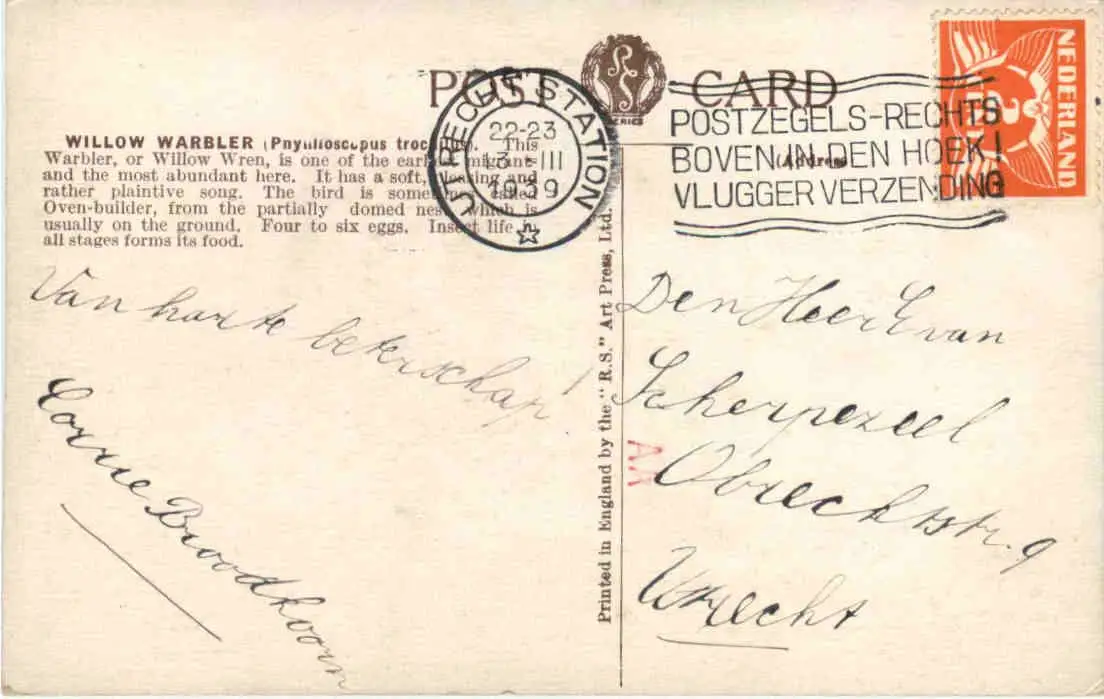 POST CARD
RS
SERIES
UTRECHT STATION
22-23
13 III
1939
POSTZEGELS-RECHTS
BOVEN IN DEN HOEK!
VLUGGER VERZENDING
NEDERLAND
2
(Address
WILLOW WARBLER (Phylloscopus troc This
Warbler, or Willow Wren, is one of the earliest migrants
and the most abundant here. It has a soft, pleasing and
rather plaintive song. The bird is sometimes called
Oven-builder, from the partially domed nest, which is
usually on the ground. Four to six eggs. Insect life in
all stages forms its food.
Van harte beterschap!
Corrie Broodhoorn
Printed in England by the "R.S." Art Press, Ltd.
Den Heer E van
Scherpezeel
Obrechtstr. 9
Utrecht
AA